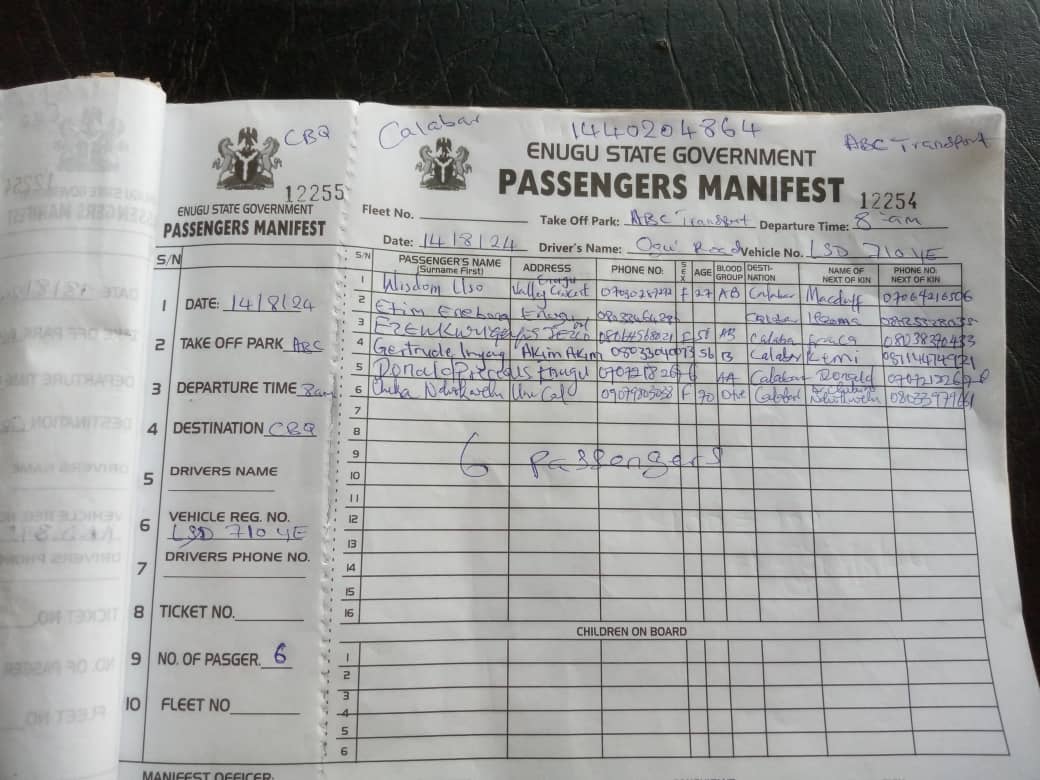 CBQ
12255
ENUGU STATE GOVERNMENT
PASSENGERS MANIFEST
S/N
1 DATE: 14/8/24
2 TAKE OFF PARK ABC
3 DEPARTURE TIME 8am
4 DESTINATION CBQ
5 DRIVERS NAME
6 VEHICLE REG. NO.
LSD 710 YE
7 DRIVERS PHONE NO.
8 TICKET NO.
9 NO. OF PASGER. 6
10 FLEET NO
MANIFEST OFFICER:
Calabar 1440204864 ABC Transport
ENUGU STATE GOVERNMENT
PASSENGERS MANIFEST 12254
Fleet No. Take Off Park: ABC Transport Departure Time: 8 am
Date: 14/8/24 Driver's Name: Ogui Road Vehicle No. LSD 710 YE
S/N PASSENGER'S NAME (Surname First) ADDRESS PHONE NO: SEX AGE BLOOD GROUP DESTINATION NAME OF NEXT OF KIN PHONE NO: NEXT OF KIN
1 Wisdom Enugu Valley F 27 AB Calabar Macduff 07064216506
2 Etim Enugu Calabar
3 F 58 AB Calabar Grace
4 Gertrude Inyang Akim Akim 56 B Calabar Kemi
5 Donald Precious Enugu AA Calabar Donald
6 Uni Cal 09079805038 F 70 Calabar
7
8
9
6 Passengers
10
11
12
13
14
15
16
CHILDREN ON BOARD
1
2
3
4
5
6